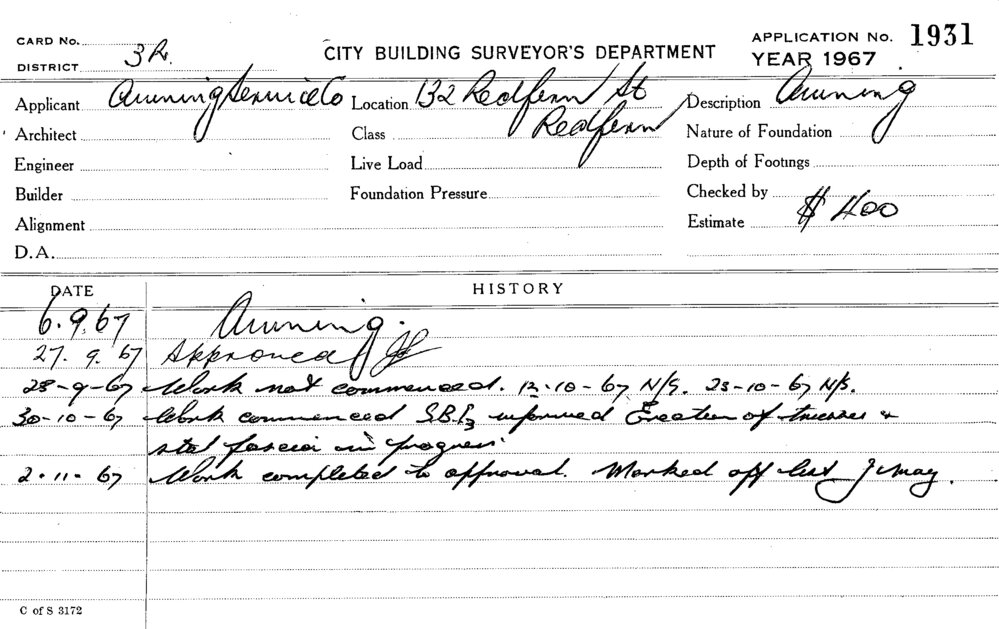 CARD No.
DISTRICT 3R.
CITY BUILDING SURVEYOR'S DEPARTMENT
APPLICATION No. 1931
YEAR 1967
Applicant Awning Service Co Location 132 Redfern St Description Awning
Architect Class Redfern Nature of Foundation
Engineer Live Load Depth of Footings
Builder Foundation Pressure Checked by
Alignment Estimate $ 400
D.A.
DATE HISTORY
6.9.67 Awning.
27.9.67 Approved
28-9-67 Work not commenced. 12-10-67 N/S. 23-10-67 N/S.
30-10-67 Work commenced informed Erection of trusses &
steel fascia in progress.
2.11.67 Work completed to approval. Marked off list
C of S 3172